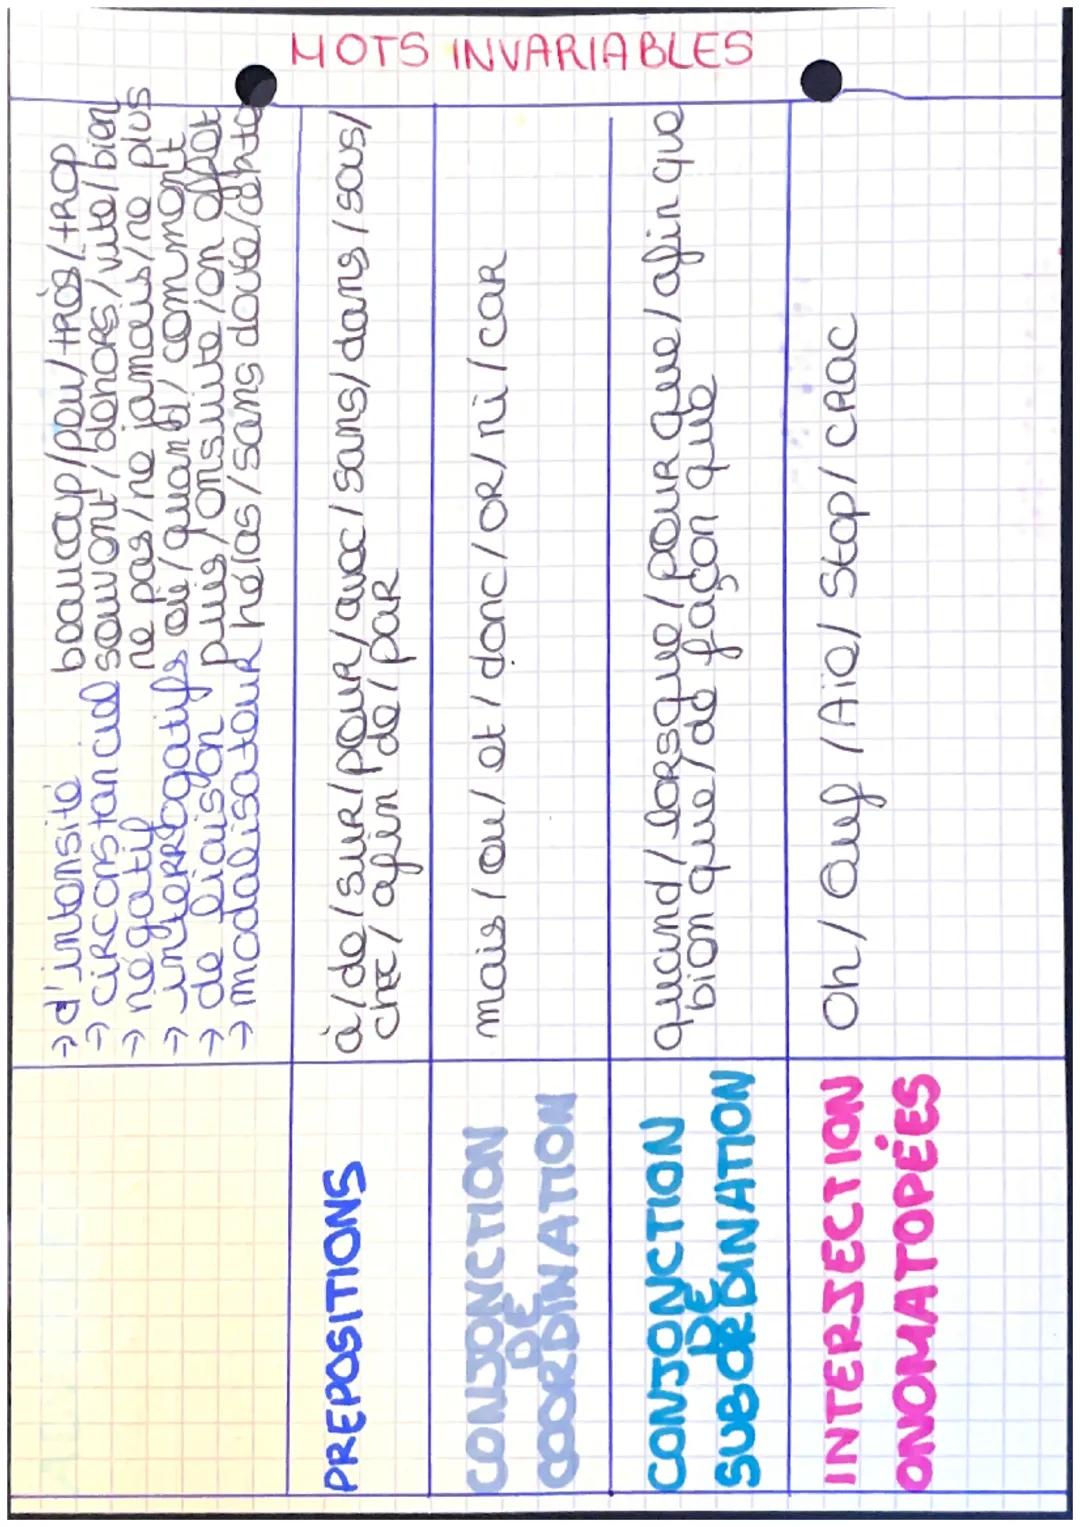 MOTS INVARIABLES
→ d'intensité beaucoup/peu/très/trop
→ circonstanciel souvent/dehors/vite/bien
→ négatif ne pas/ne jamais/ne plus
→ interrogatifs où/quand/comment
→ de liaison puis/ensuite/en effet
→ modalisateur hélas/sans doute/
PREPOSITIONS
à/de/sur/pour/avec/sans/dans/sous/
chez/afin de/par
CONJONCTION
DE
COORDINATION
mais/ou/et/donc/or/ni/car
CONJONCTION
DE
SUBORDINATION
quand/lorsque/pour que/afin que
bien que/de façon que
INTERJECTION
ONOMATOPÉES
Oh/Ouf/Aïe/Stop/crac